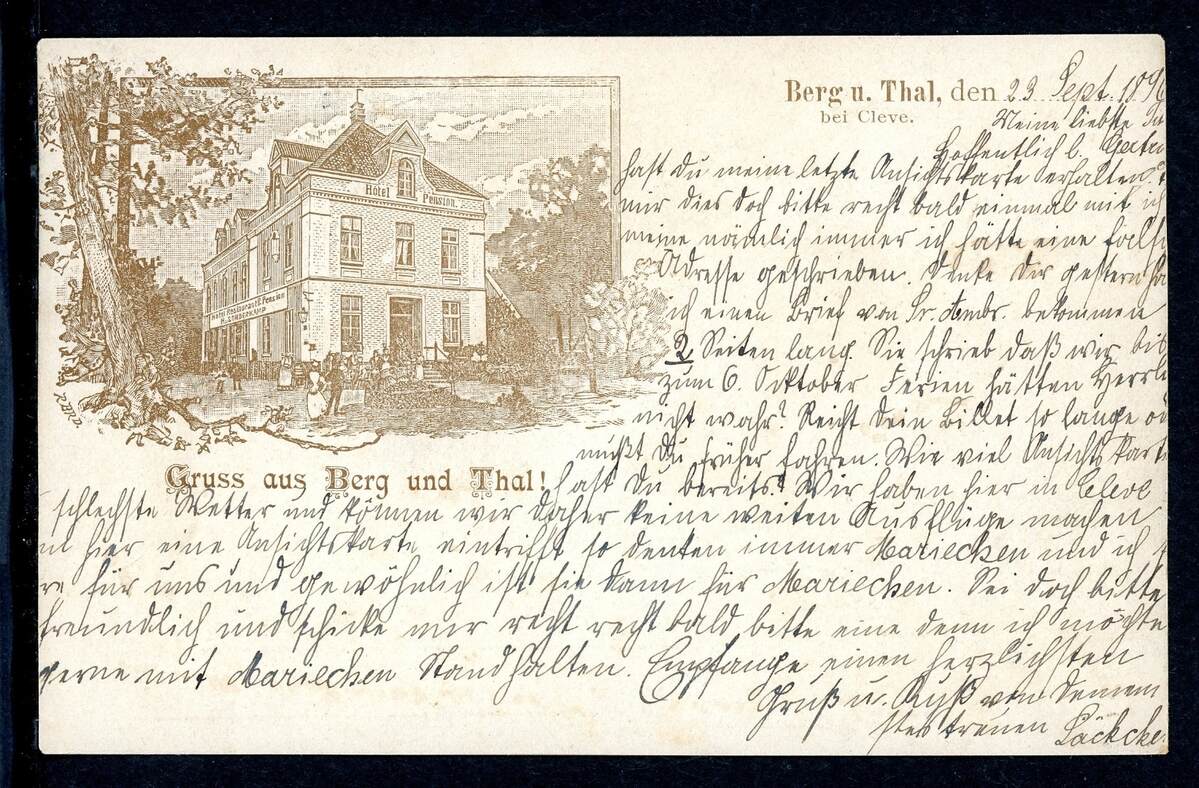 Berg u. Thal, den 23 Sept. 1896
bei Cleve.
Meine liebste
Hoffentlich b.
hast Du meine letzte Ansichtskarte erhalten,
mir dies doch bitte recht bald einmal mit ich
meine nämlich immer ich hätte eine falsch
Adresse geschrieben. Denke Dir gestern ha
ich einen Brief von Sr. Ambr. bekommen
2 Seiten lang. Sie schrieb daß wir bis
zum 6. Ocktober Ferien hätten Herrli
nicht wahr? Reicht Dein Billet so lange od
mußt Du früher fahren. Wie viel Ansichtskart
hast Du bereits? Wir haben hier in Cleve
schlechste Wetter und können wir daher keine weiten Ausflüge machen
n hier eine Ansichtskarte eintrifft so denken immer Mariechen und ich
re für uns und gewöhnlich ist sie dann für Mariechen. Sei doch bitte
freundlich und schicke mir recht recht bald bitte eine denn ich möchte
gerne mit Mariechen Standhalten. Empfange einen herzlichsten
Gruß u. Kuß von Deinem
treuen
Hôtel
Pension.
Hôtel Restaurant & Pension
Gruss aus Berg und Thal!